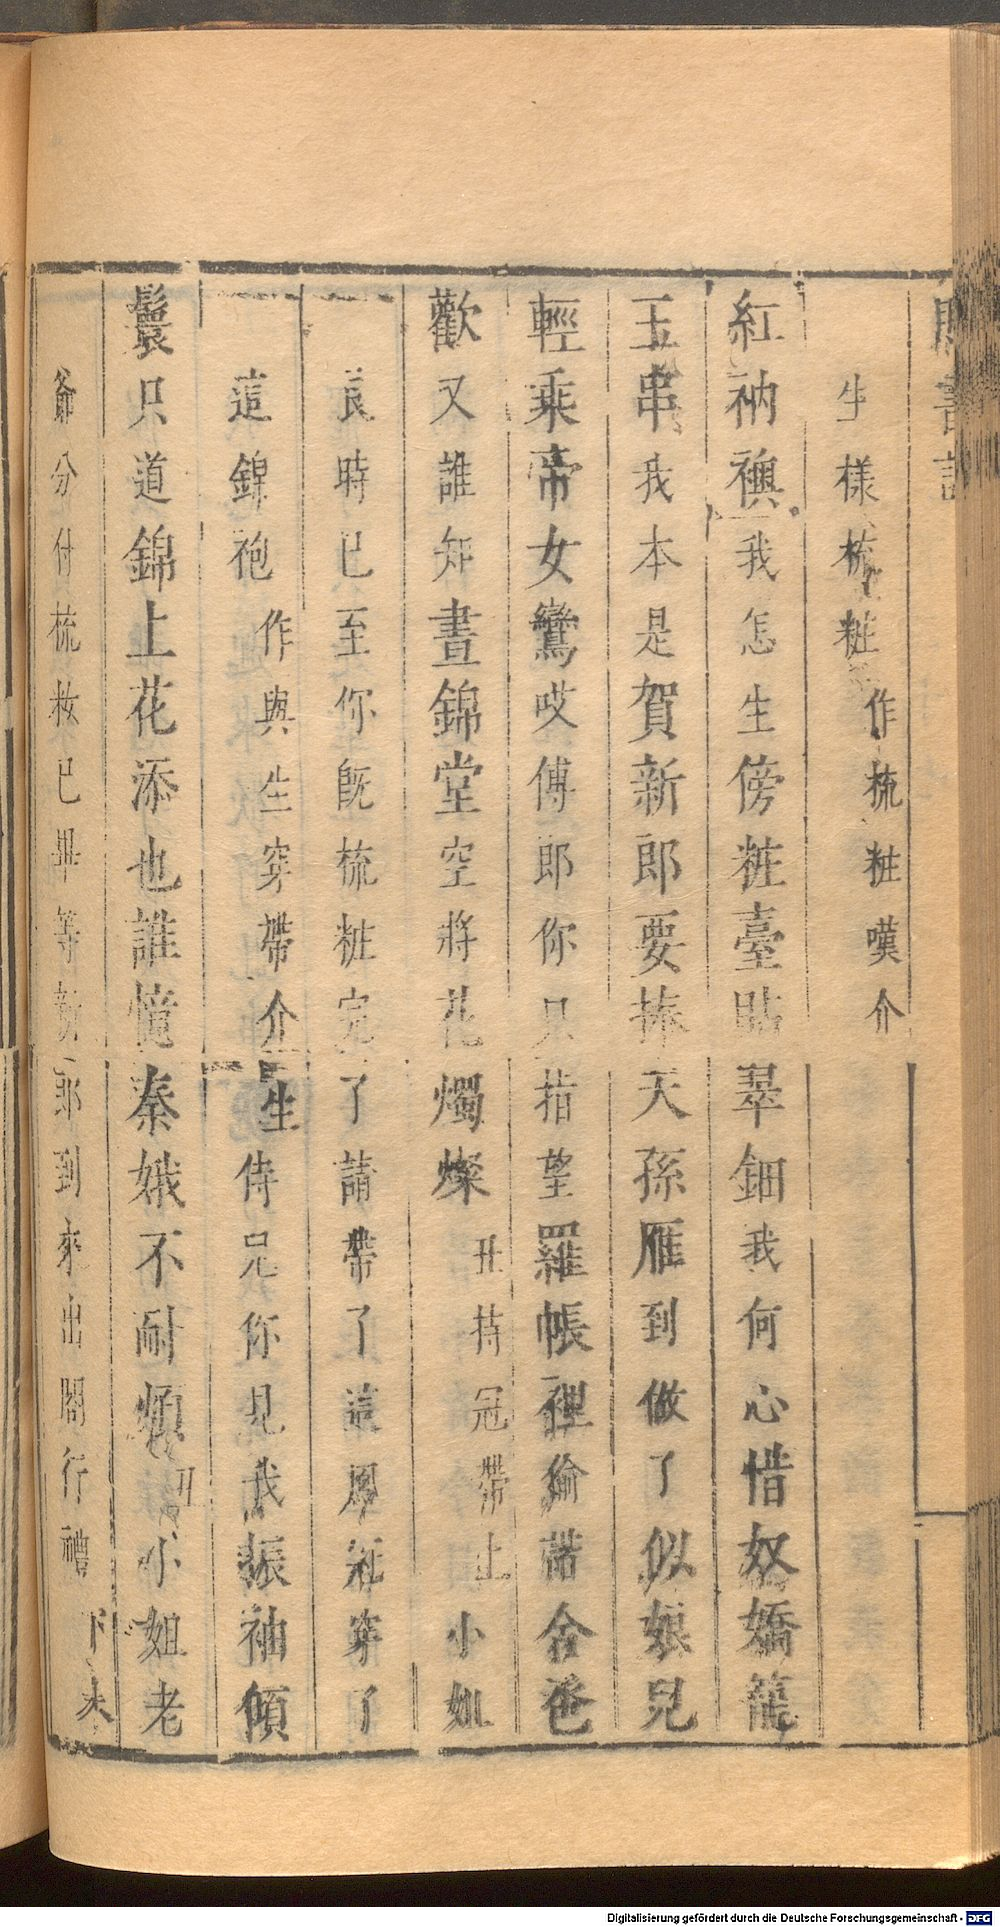 生樣梳粧作梳粧嘆介
紅衲襖我怎生傍粧臺貼翠鈿我何心惜奴嬌籠
玉串我本是賀新郎要捧天孫雁到做了似娘兒
輕乘帝女鸞哎傅郎你只指望羅帳裡偷諾舍爸
歡又誰知晝錦堂空將花燭燦丑持冠帶上小姐
良時已至你旣梳粧完了請帶了這鳳冠穿了
這錦袍作與生穿帶介生侍兒你見我振袖傾
鬟只道錦上花添也誰憤秦娥不耐煩丑小姐老
爺分付梳妝已畢等新郎到來出閣行禮下末
Digitalisierung gefördert durch die Deutsche Forschungsgemeinschaft - DFG